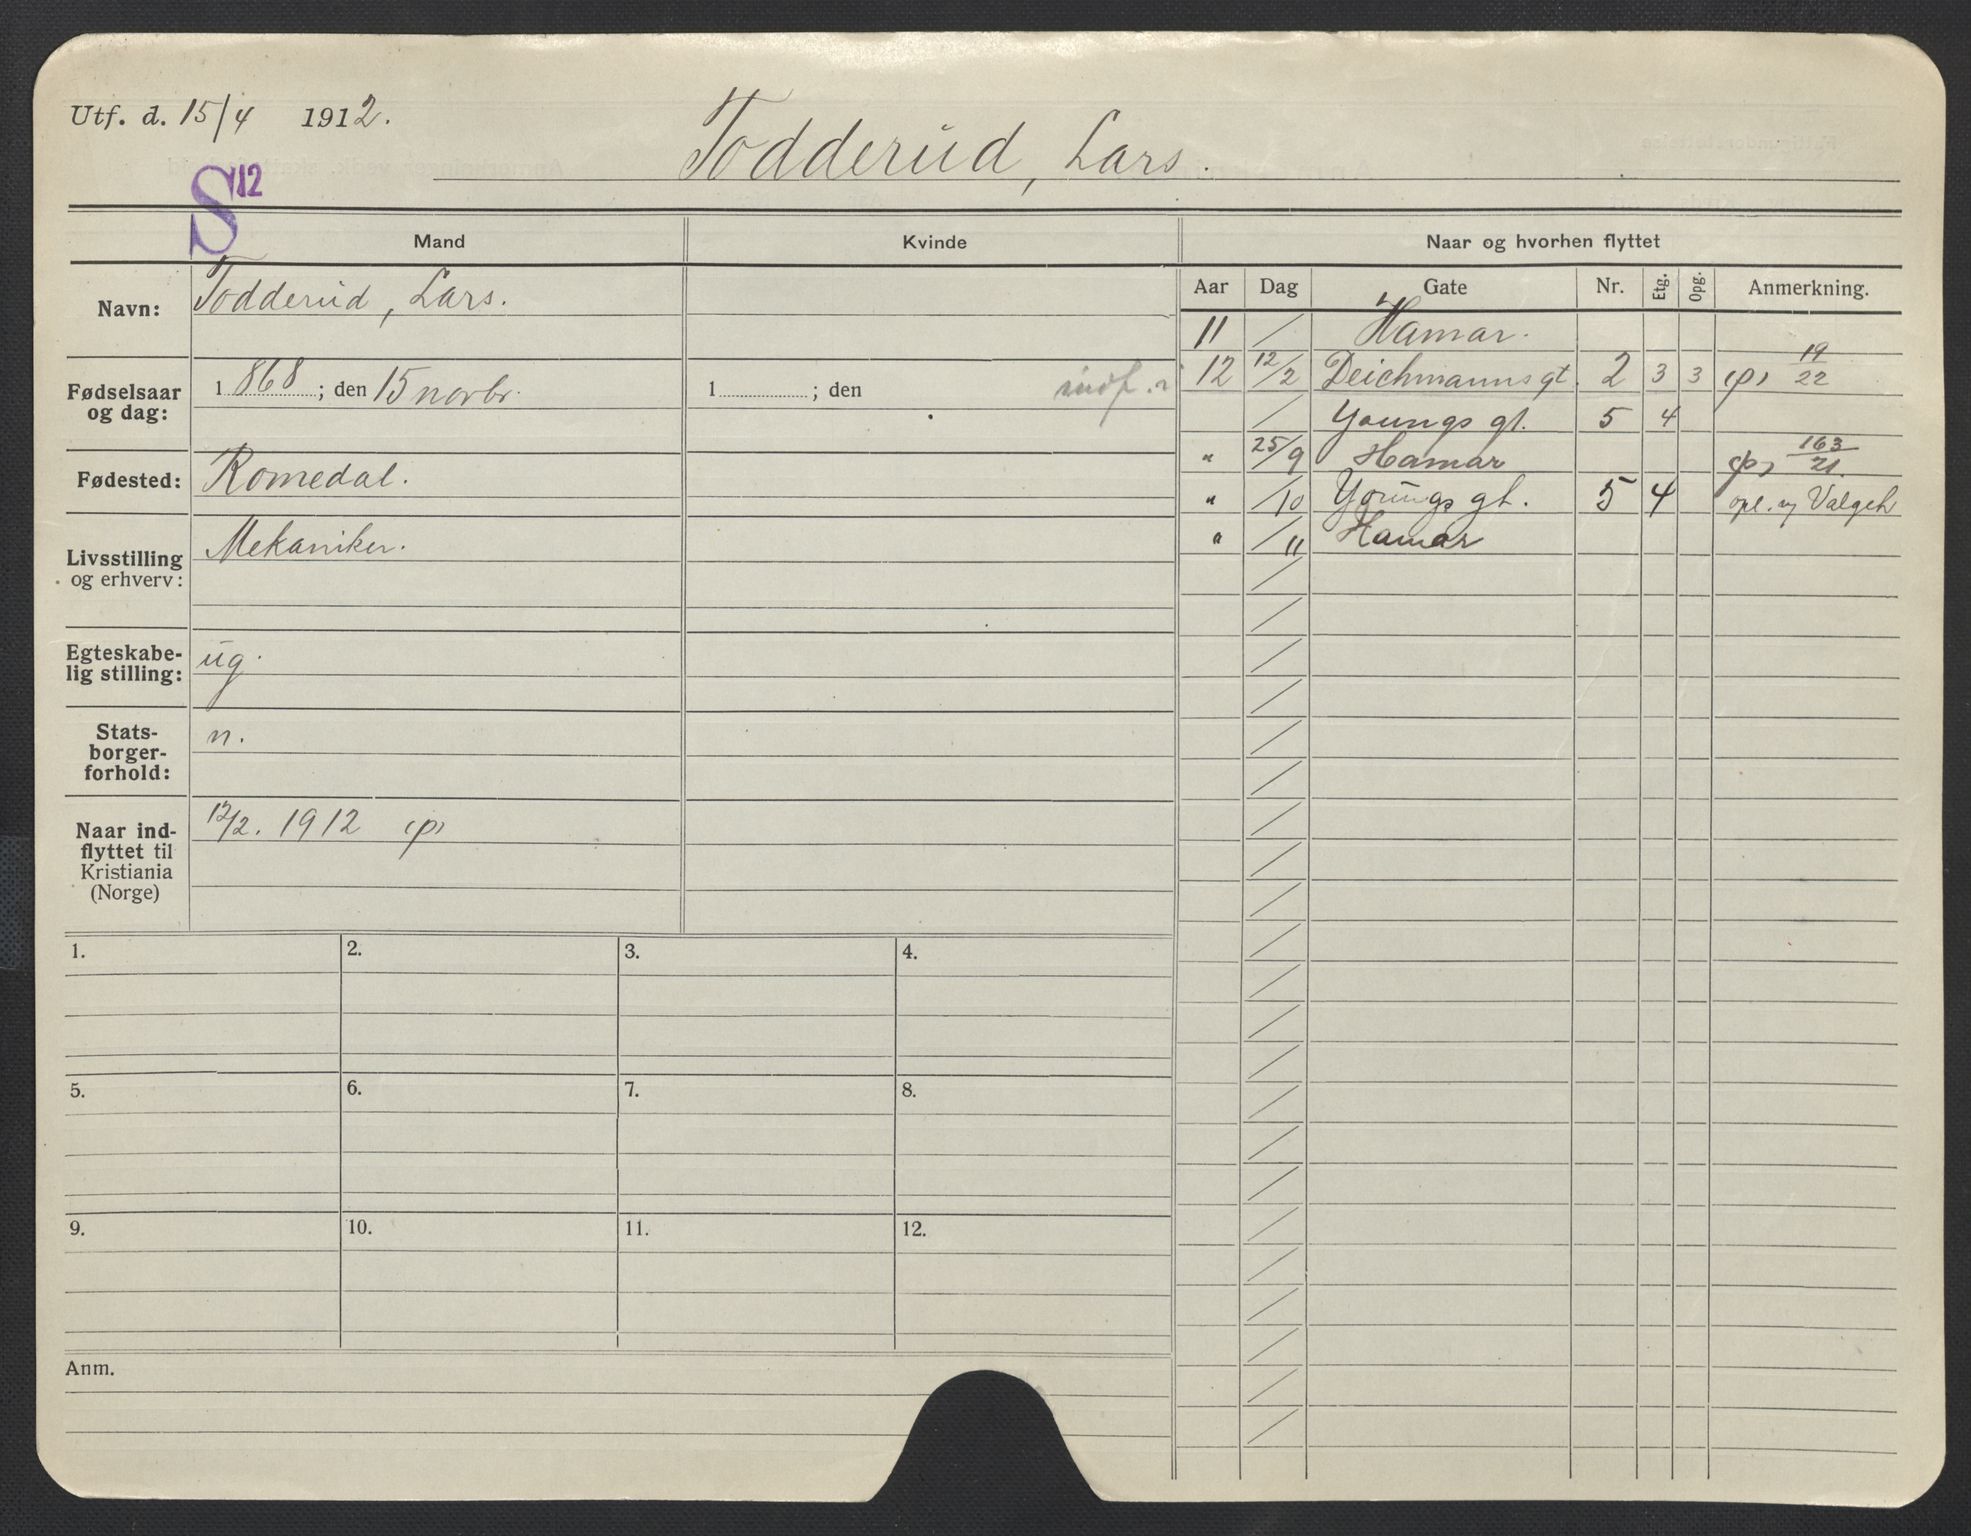 Utf. d. 15/4 1912.
Todderud, Lars.
S 12
Mand
Kvinde
Naar og hvorhen flyttet
Navn:
Todderud, Lars.
Fødselsaar og dag:
1868; den 15 novbr.
1 ; den
indf.
Fødested:
Romedal.
Livsstilling og erhverv:
Mekaniker.
Egteskabe-
lig stilling:
ug.
Stats-
borger-
forhold:
n.
Naar ind-
flyttet til
Kristiania
(Norge)
12/2. 1912 (p)
Aar Dag Gate Nr. Etg. Opg. Anmerkning.
11 / Hamar.
12 12/2 Deichmanns gt. 2 3 3 (p) 19/22
/ Youngs gt. 5 4
" 25/9 Hamar (p) 163/21
" /10 Youngs gt. 5 4 opl. Valgch
" /11 Hamar
1. 2. 3. 4.
5. 6. 7. 8.
9. 10. 11. 12.
Anm.